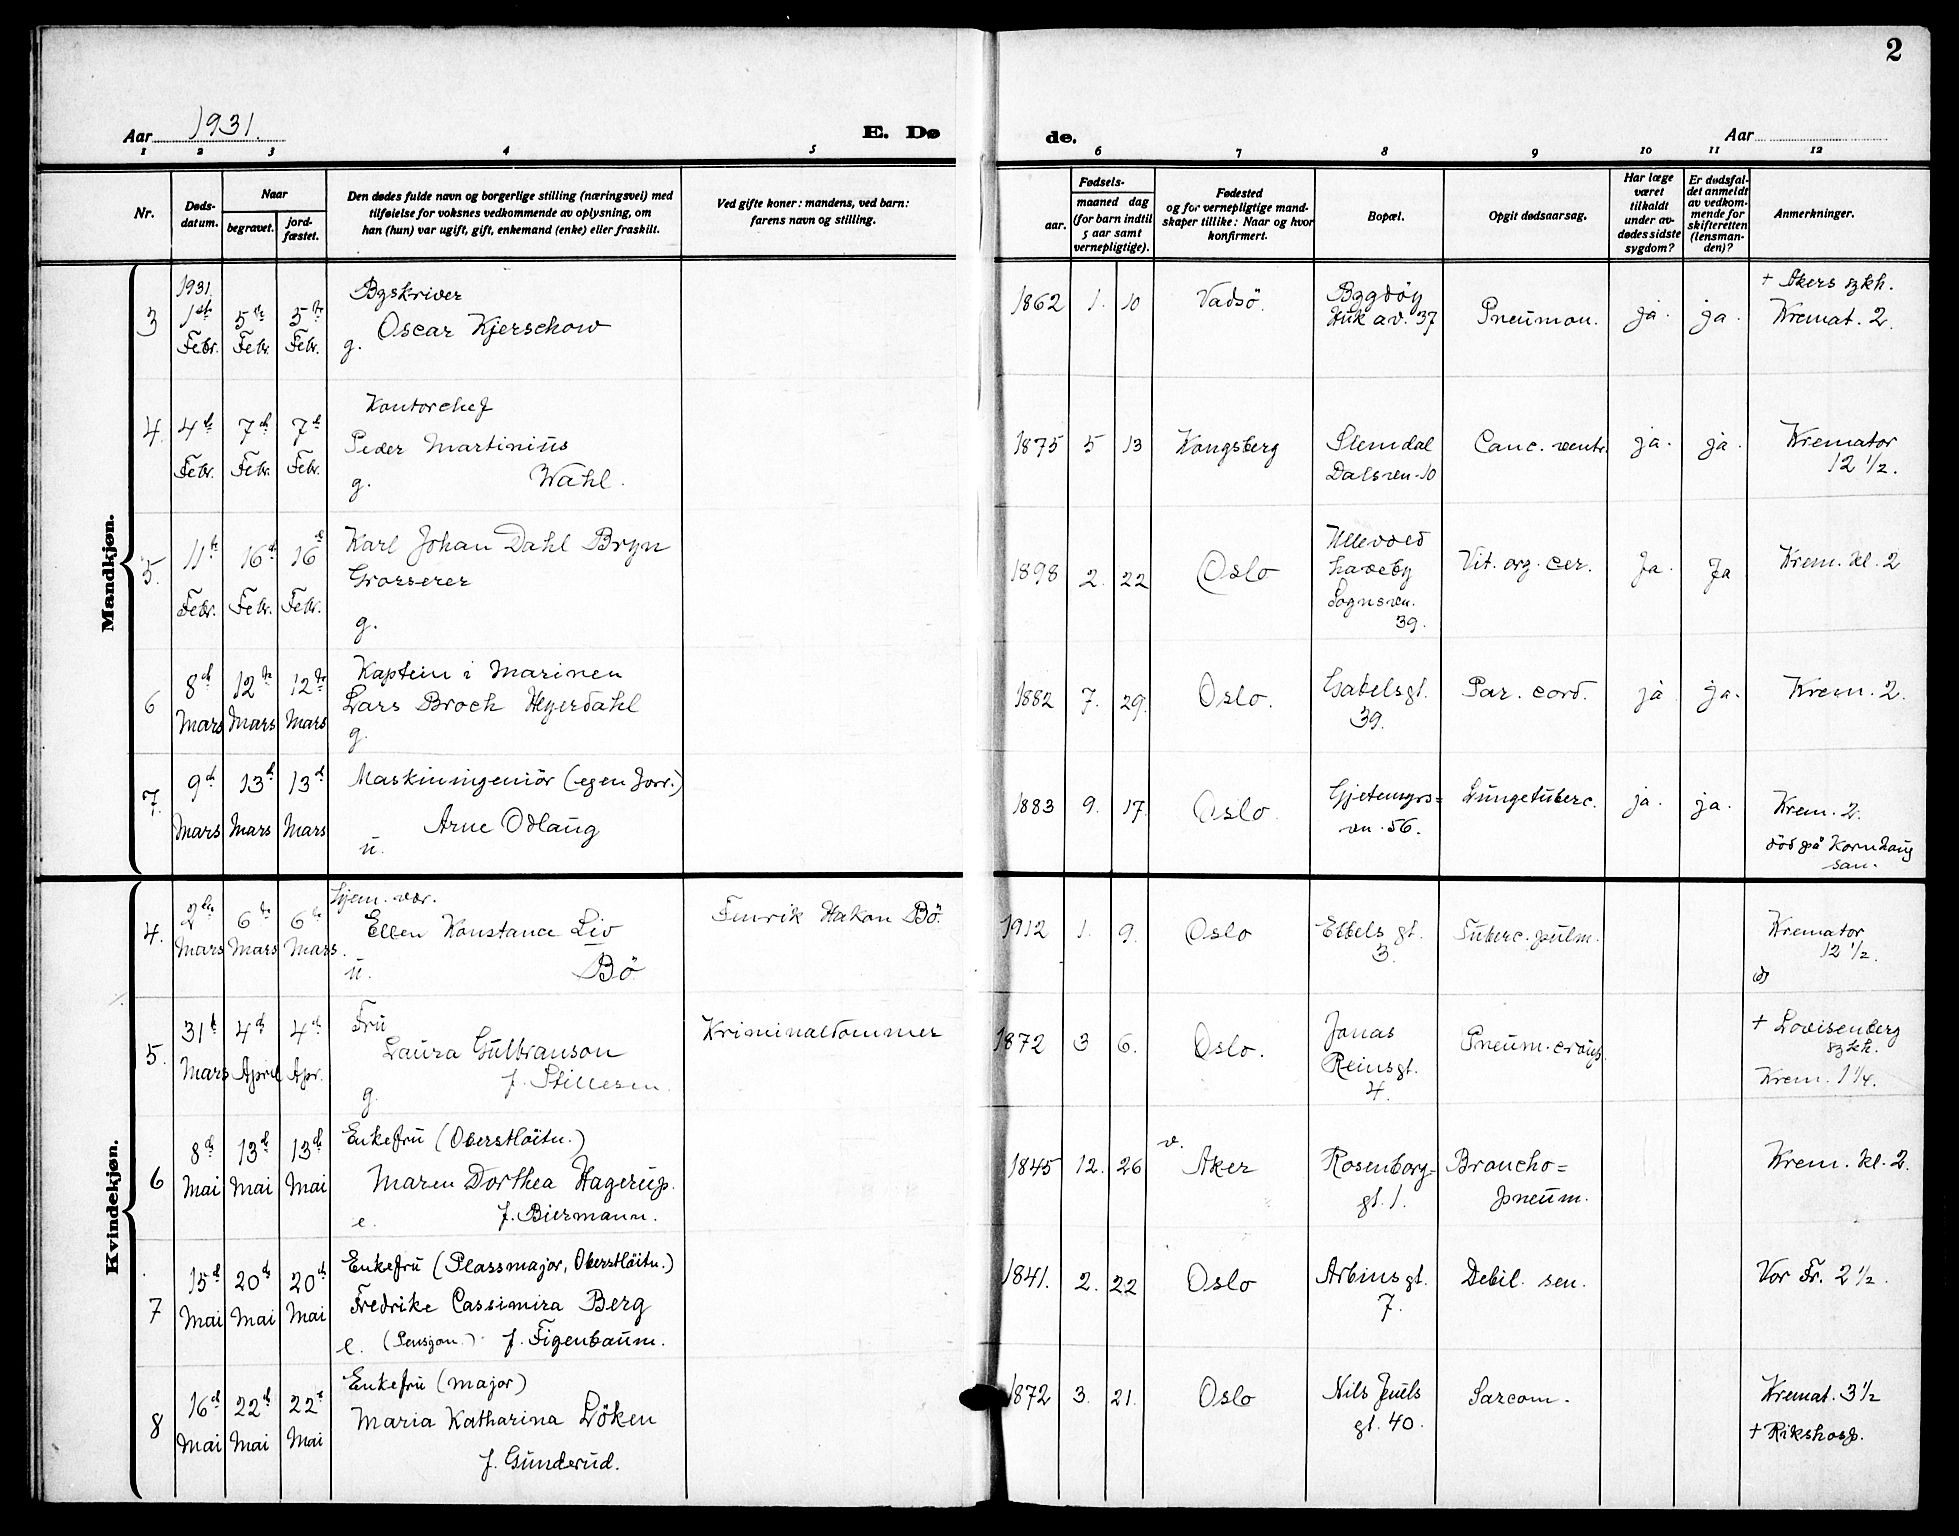 2
Aar 1931.
E. Dø
de.
Aar
1 2 3 4 5 6 7 8 9 10 11 12
Nr.
Døds-
datum.
Naar
begravet.
jord-
fæstet.
Den dødes fulde navn og borgerlige stilling (næringsvei) med
tilføielse for voksnes vedkommende av oplysning, om
han (hun) var ugift, gift, enkemand (enke) eller fraskilt.
Ved gifte koner: mandens, ved barn:
farens navn og stilling.
Fødsels-
aar.
maaned dag
(for barn indtil
5 aar samt
vernepligtige).
Fødested
og for vernepligtige mand-
skaper tillike: Naar og hvor
konfirmert.
Bopæl.
Opgit dødsaarsag.
Har læge
været
tilkaldt
under av-
dødes sidste
sygdom?
Er dødsfal-
det anmeldt
av vedkom-
mende for
skifteretten
(lensman-
den)?
Anmerkninger.
Mandkjøn.
1931.
3
1ste Febr.
5te Febr.
5te Febr.
Byskriver
Oscar Kjerschow
g.
1862 1. 10
Vadsö.
Bygdöy
Huk av. 37
Pneumon.
ja.
ja.
+ Akers sykh.
Kremat. 2.
4.
4de Febr.
7de Febr.
7de Febr.
Kontorchef
Peder Martinius
g. Wahl.
1875 5 13
Kongsberg
Slemdal
Dalsven. 10
Canc. ventr.
ja.
ja.
Kremator
12 1/2.
5.
11te Febr.
16de Febr.
16de Febr.
Karl Johan Dahl Bryn
Grosserer
g.
1898 2. 22
Oslo
Ullevold
haveby
Sognsven.
39.
Vit. org. cer.
Ja.
Ja
Krem. kl. 2
6
8de Mars
12te Mars
12te Mars
Kaptein i Marinen
Lars Broch Heyerdahl
g.
1882 7. 29.
Oslo.
Gabelsgt.
39.
Par. cord.
ja
ja.
Krem. 2.
7.
9de Mars
13de Mars
13de Mars
Maskiningeniör (egen forr.)
Arne Odlaug
u.
1883 9. 17.
Oslo.
Gjetemyrs=
vn. 56.
Lungetuberc.
ja.
ja.
Krem. 2.
död på Kornhaug
san.
Kvindekjøn.
4.
2den Mars
6te Mars
6te Mars.
hjem. vær.
Ellen Konstance Liv
u. Bö
Fenrik Hakon Bö.
1912 1. 9.
Oslo
Ebbels gt.
3.
Tuberc. pulm.
Kremator
12 1/2.
5.
31te Mars
4de April
4de Apr.
Fru
Laura Gulbranson
f. Stillesen.
g.
Kriminaldommer
1872 3 6.
Oslo.
Jonas
Reinsgt.
4.
Pneum. croup.
+ Lovisenberg
sykh.
Krem. 1 1/4.
6
8de Mai
13de Mai
13de Mai
Enkefru (Oberstlöitn.)
Maren Dorthea Hagerup.
e. f. Biermann.
1845 12. 26
v. Aker
Rosenborg=
gt. 1.
Broncho=
pneum.
Krem. kl. 2.
7
15de Mai
20de Mai
20de Mai
Enkefru (Plassmajor, Oberstlöitn.)
Fredrike Cassimira Berg
e. (Pensjon.) f. Figenbaum.
1841. 2. 22
Oslo
Arbinsgt.
7.
Debil. sen.
Vor Fr. 2 1/2.
8
16de Mai
22de Mai
22de Mai
Enkefru (major)
Maria Katharina Löken
f. Gunderud.
1872 3. 21.
Oslo
Nils Juels
gt. 40.
Sarcom.
Kremat. 3 1/2
+ Rikshosp.